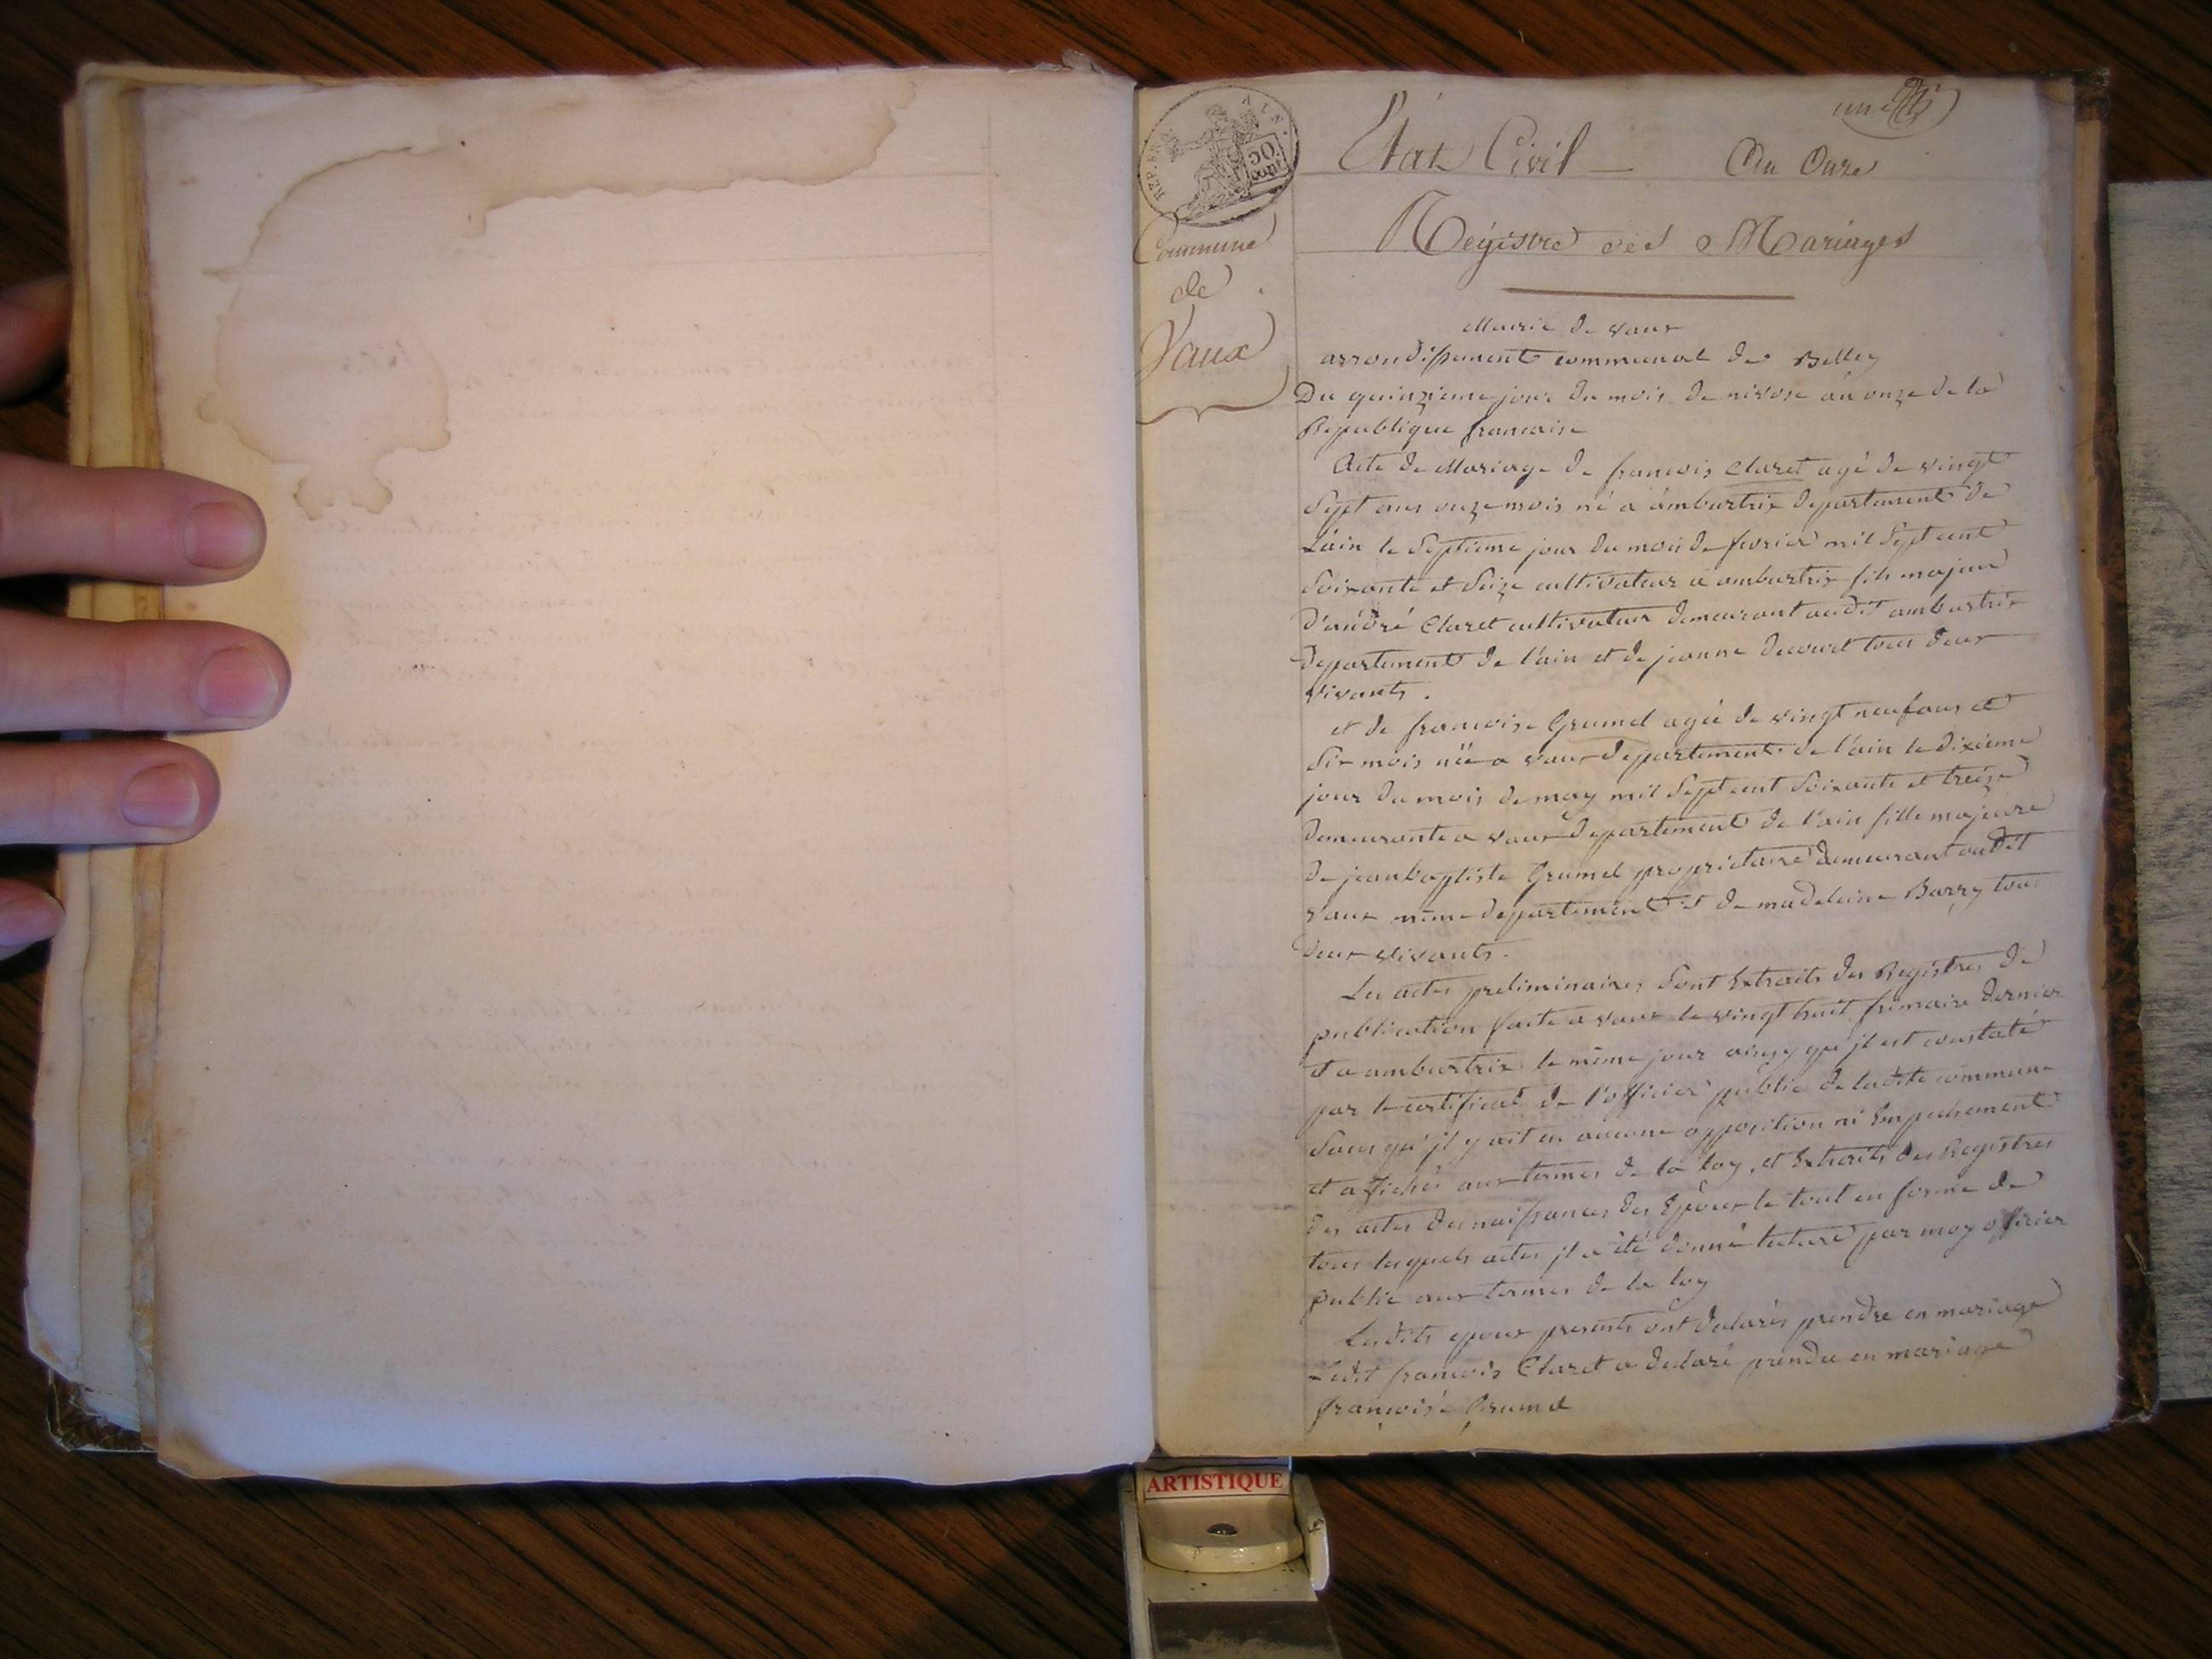 une
REP. FRA
50
cent
État Civil — An Onze
Commune
de
Vaux
Régistre des Mariages
Mairie de vaux
arrondissement communal de Belley
Du quinzieme jour du mois de nivose an onze de la
Republique francaise
Acte de Mariage de francois Claret agé de vingt
Sept ans onze mois né a ambustrix departement de
L'ain le Septieme jour du mois de fevrier mil Sept cent
Soixante et Seize cultivateur a ambustrix fils majeur
d'andré Claret cultivateur demeurant audit ambustrix
departement de l'ain et de jeanne decourt tous deux
vivants.
et de francoise Grumel agée de vingt neuf ans et
Six mois née a vaux departement de l'ain le dixieme
jour du mois de may mil Sept cent Soixante et treize
demeurante a vaux departement de l'ain fille majeure
de jean baptiste Grumel proprietaire demeurant audit
vaux même departement et de madeleine Barry tous
deux vivants.
Les actes preliminaires Sont Extraits des Registres de
publication faite a vaux le vingt huit frimaire dernier
et a ambustrix le même jour ainsy qu'il est constaté
par le certificat de l'officier public de ladite commune
Sans qu'il y ait eu aucune opposition ni Empechement
et affichés aux termes de la loy, et Extraits des Registres
des actes des naissances des Epoux le tout en forme de
tous lesquels actes il a été donné lecture par moy officier
public aux termes de la loy
Lesdits epoux presents ont declarés prendre en mariage
Ledit francois Claret a declaré prendre en mariage
françoise Grumel
ARTISTIQUE